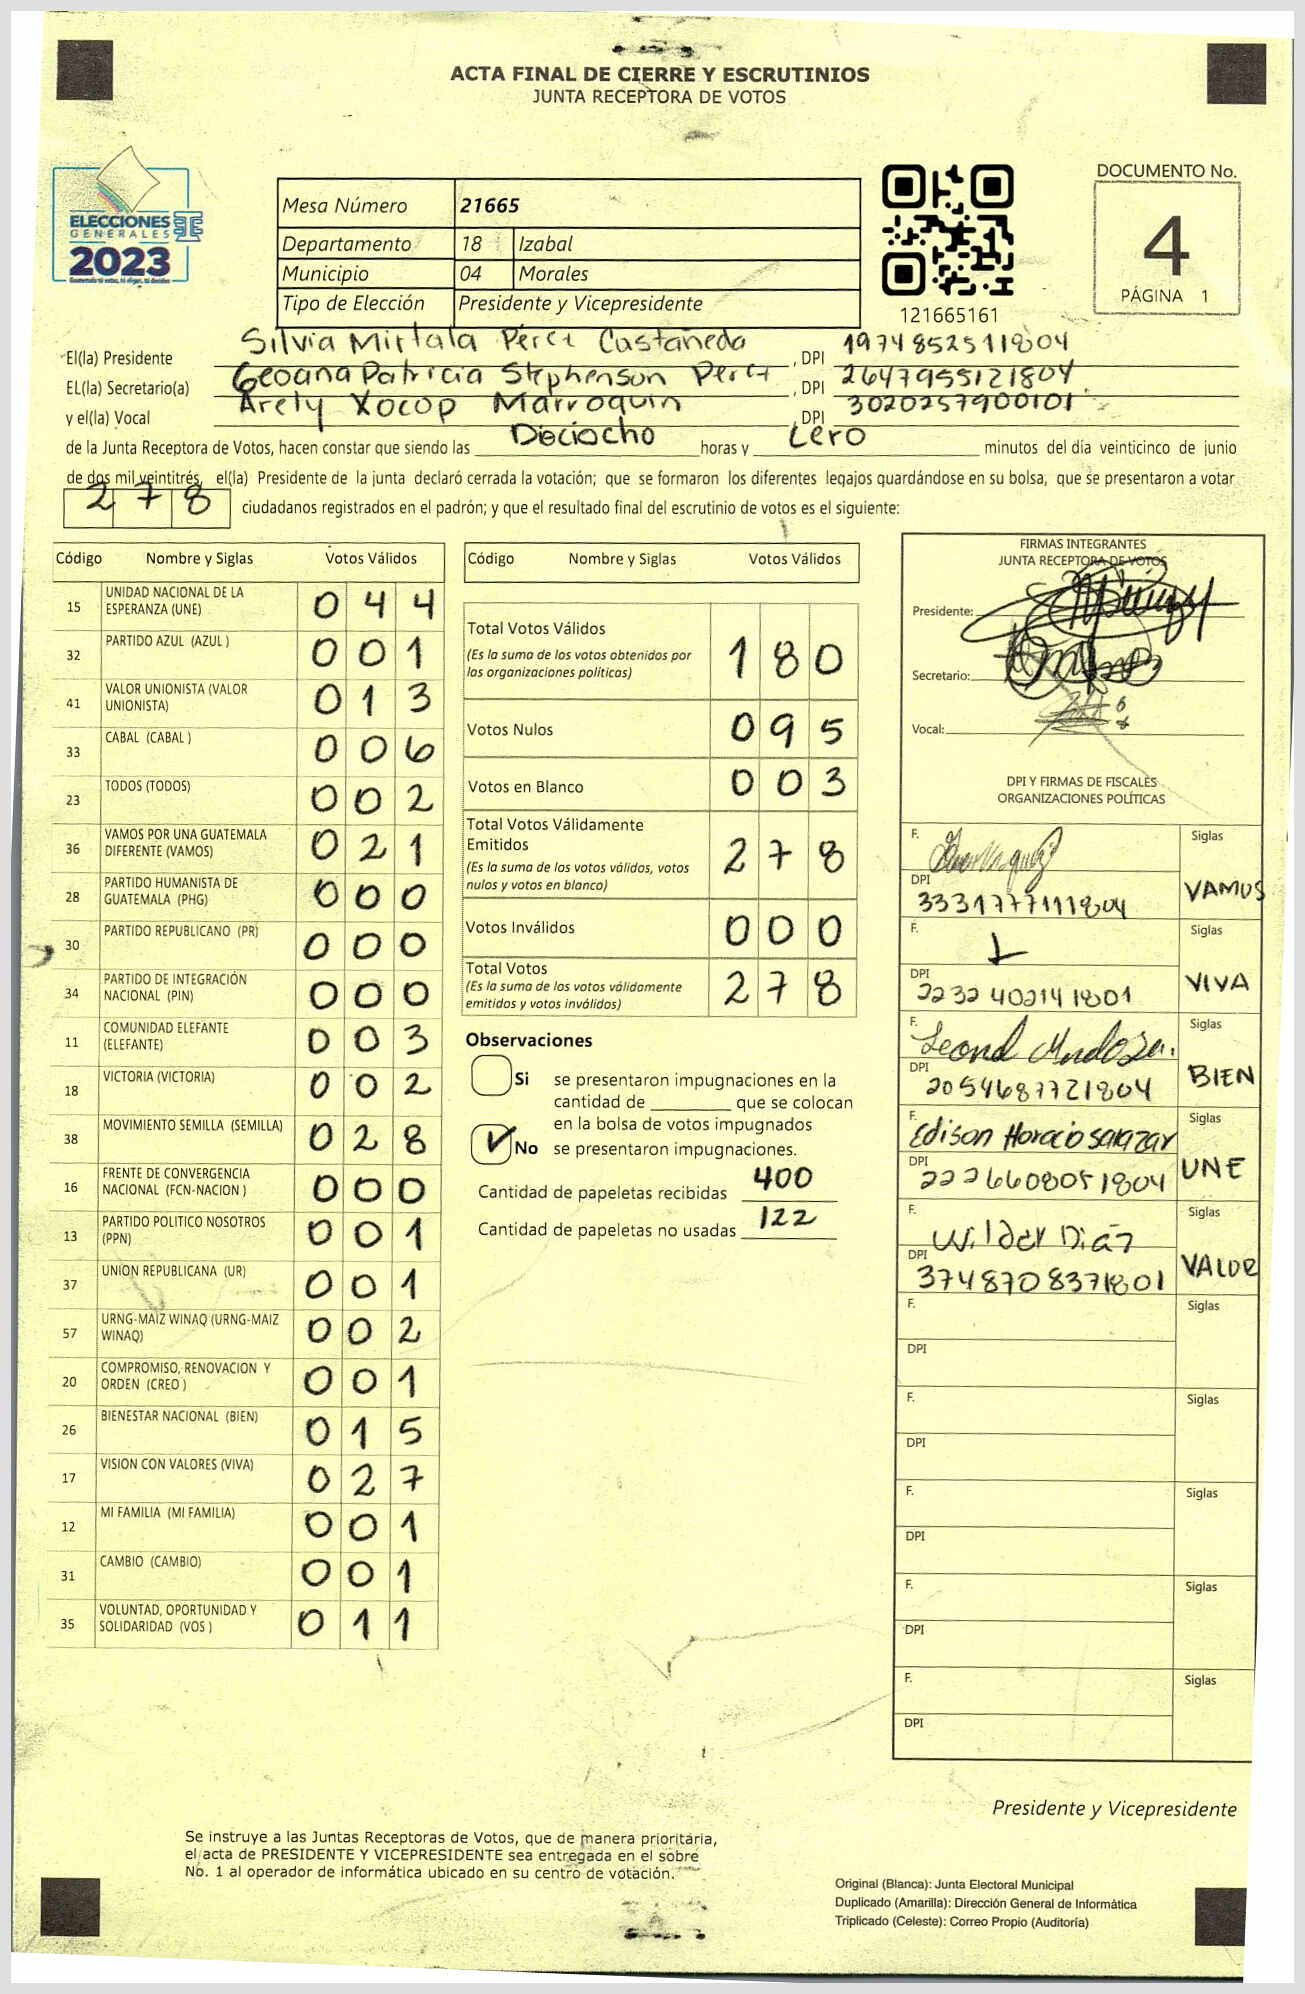 ACTA FINAL DE CIERRE Y ESCRUTINIOS
JUNTA RECEPTORA DE VOTOS
ELECCIONES
GENERALES
2023
Mesa Número 21665
Departamento 18 Izabal
Municipio 04 Morales
Tipo de Elección Presidente y Vicepresidente
121665161
DOCUMENTO No.
4
PÁGINA 1
El(la) Presidente Silvia Mirtala Pérez Castañeda, DPI 1974852511804
EL(la) Secretario(a) Geoana Patricia Stephenson Perez, DPI 2647955121804
y el(la) Vocal Arely Xocop Marroquin, DPI 3020257900101
de la Junta Receptora de Votos, hacen constar que siendo las Dieciocho horas y Cero minutos del día veinticinco de junio
de dos mil veintitrés, el(la) Presidente de la junta declaró cerrada la votación; que se formaron los diferentes legajos quardándose en su bolsa, que se presentaron a votar
278 ciudadanos registrados en el padrón; y que el resultado final del escrutinio de votos es el siguiente:
Código Nombre y Siglas Votos Válidos
15 UNIDAD NACIONAL DE LA ESPERANZA (UNE) 044
32 PARTIDO AZUL (AZUL ) 001
41 VALOR UNIONISTA (VALOR UNIONISTA) 013
33 CABAL (CABAL ) 006
23 TODOS (TODOS) 002
36 VAMOS POR UNA GUATEMALA DIFERENTE (VAMOS) 021
28 PARTIDO HUMANISTA DE GUATEMALA (PHG) 000
30 PARTIDO REPUBLICANO (PR) 000
34 PARTIDO DE INTEGRACIÓN NACIONAL (PIN) 000
11 COMUNIDAD ELEFANTE (ELEFANTE) 003
18 VICTORIA (VICTORIA) 002
38 MOVIMIENTO SEMILLA (SEMILLA) 028
16 FRENTE DE CONVERGENCIA NACIONAL (FCN-NACION ) 000
13 PARTIDO POLITICO NOSOTROS (PPN) 001
37 UNION REPUBLICANA (UR) 001
57 URNG-MAIZ WINAQ (URNG-MAIZ WINAQ) 002
20 COMPROMISO, RENOVACION Y ORDEN (CREO ) 001
26 BIENESTAR NACIONAL (BIEN) 015
17 VISION CON VALORES (VIVA) 027
12 MI FAMILIA (MI FAMILIA) 001
31 CAMBIO (CAMBIO) 001
35 VOLUNTAD, OPORTUNIDAD Y SOLIDARIDAD (VOS ) 011
Código Nombre y Siglas Votos Válidos
Total Votos Válidos 180
(Es la suma de los votos obtenidos por
las organizaciones políticas)
Votos Nulos 095
Votos en Blanco 003
Total Votos Válidamente
Emitidos 278
(Es la suma de los votos válidos, votos
nulos y votos en blanco)
Votos Inválidos 000
Total Votos 278
(Es la suma de los votos válidamente
emitidos y votos inválidos)
Observaciones
Si se presentaron impugnaciones en la
cantidad de ________ que se colocan
en la bolsa de votos impugnados
No se presentaron impugnaciones.
Cantidad de papeletas recibidas 400
Cantidad de papeletas no usadas 122
FIRMAS INTEGRANTES
JUNTA RECEPTORA DE VOTOS
Presidente:
Secretario:
Vocal:
DPI Y FIRMAS DE FISCALES
ORGANIZACIONES POLÍTICAS
F. Siglas
DPI 3331777111804 VAMOS
F. Siglas
DPI 2232402141801 VIVA
F. Leonel Mendoza. Siglas
DPI 2054687721804 BIEN
F. Edison Horacio Salazar Siglas
DPI 2226608051804 UNE
F. Wilder Diaz Siglas
DPI 3748708371801 VALOR
F. Siglas
DPI
F. Siglas
DPI
F. Siglas
DPI
F. Siglas
DPI
F. Siglas
DPI
Presidente y Vicepresidente
Se instruye a las Juntas Receptoras de Votos, que de manera prioritária,
el acta de PRESIDENTE Y VICEPRESIDENTE sea entregada en el sobre
No. 1 al operador de informática ubicado en su centro de votación.
Original (Blanca): Junta Electoral Municipal
Duplicado (Amarilla): Dirección General de Informática
Triplicado (Celeste): Correo Propio (Auditoría)